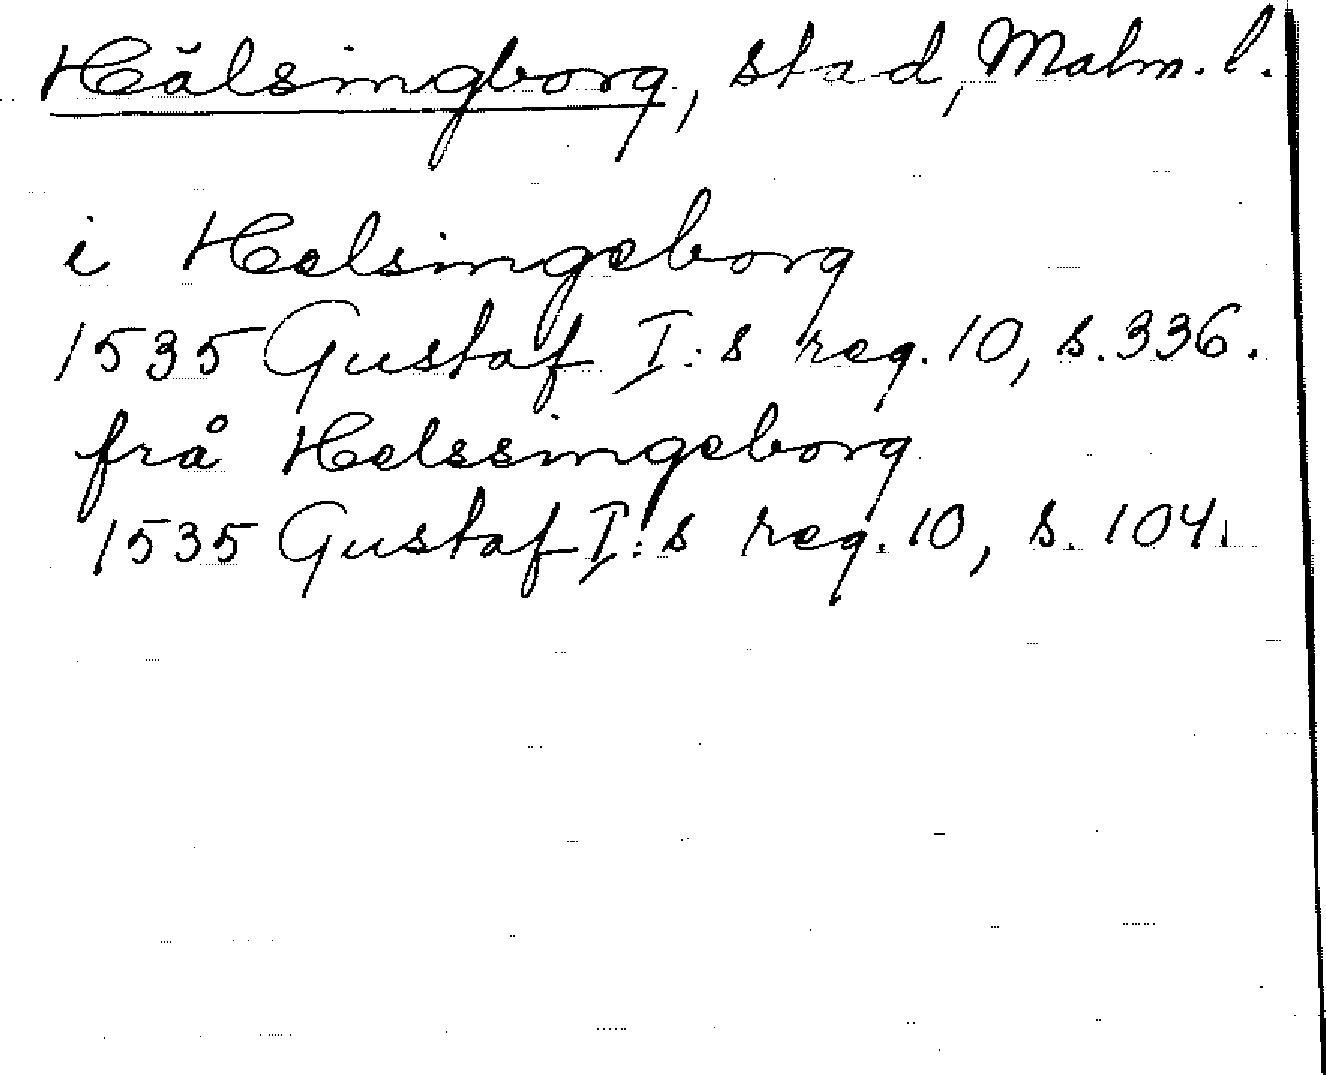 Hälsingborg, stad, Malm. l.
i Helsingeborg
1535 Gustaf I:s reg. 10, s. 336.
frå Helssingeborg
1535 Gustaf I:s reg. 10, s. 104.